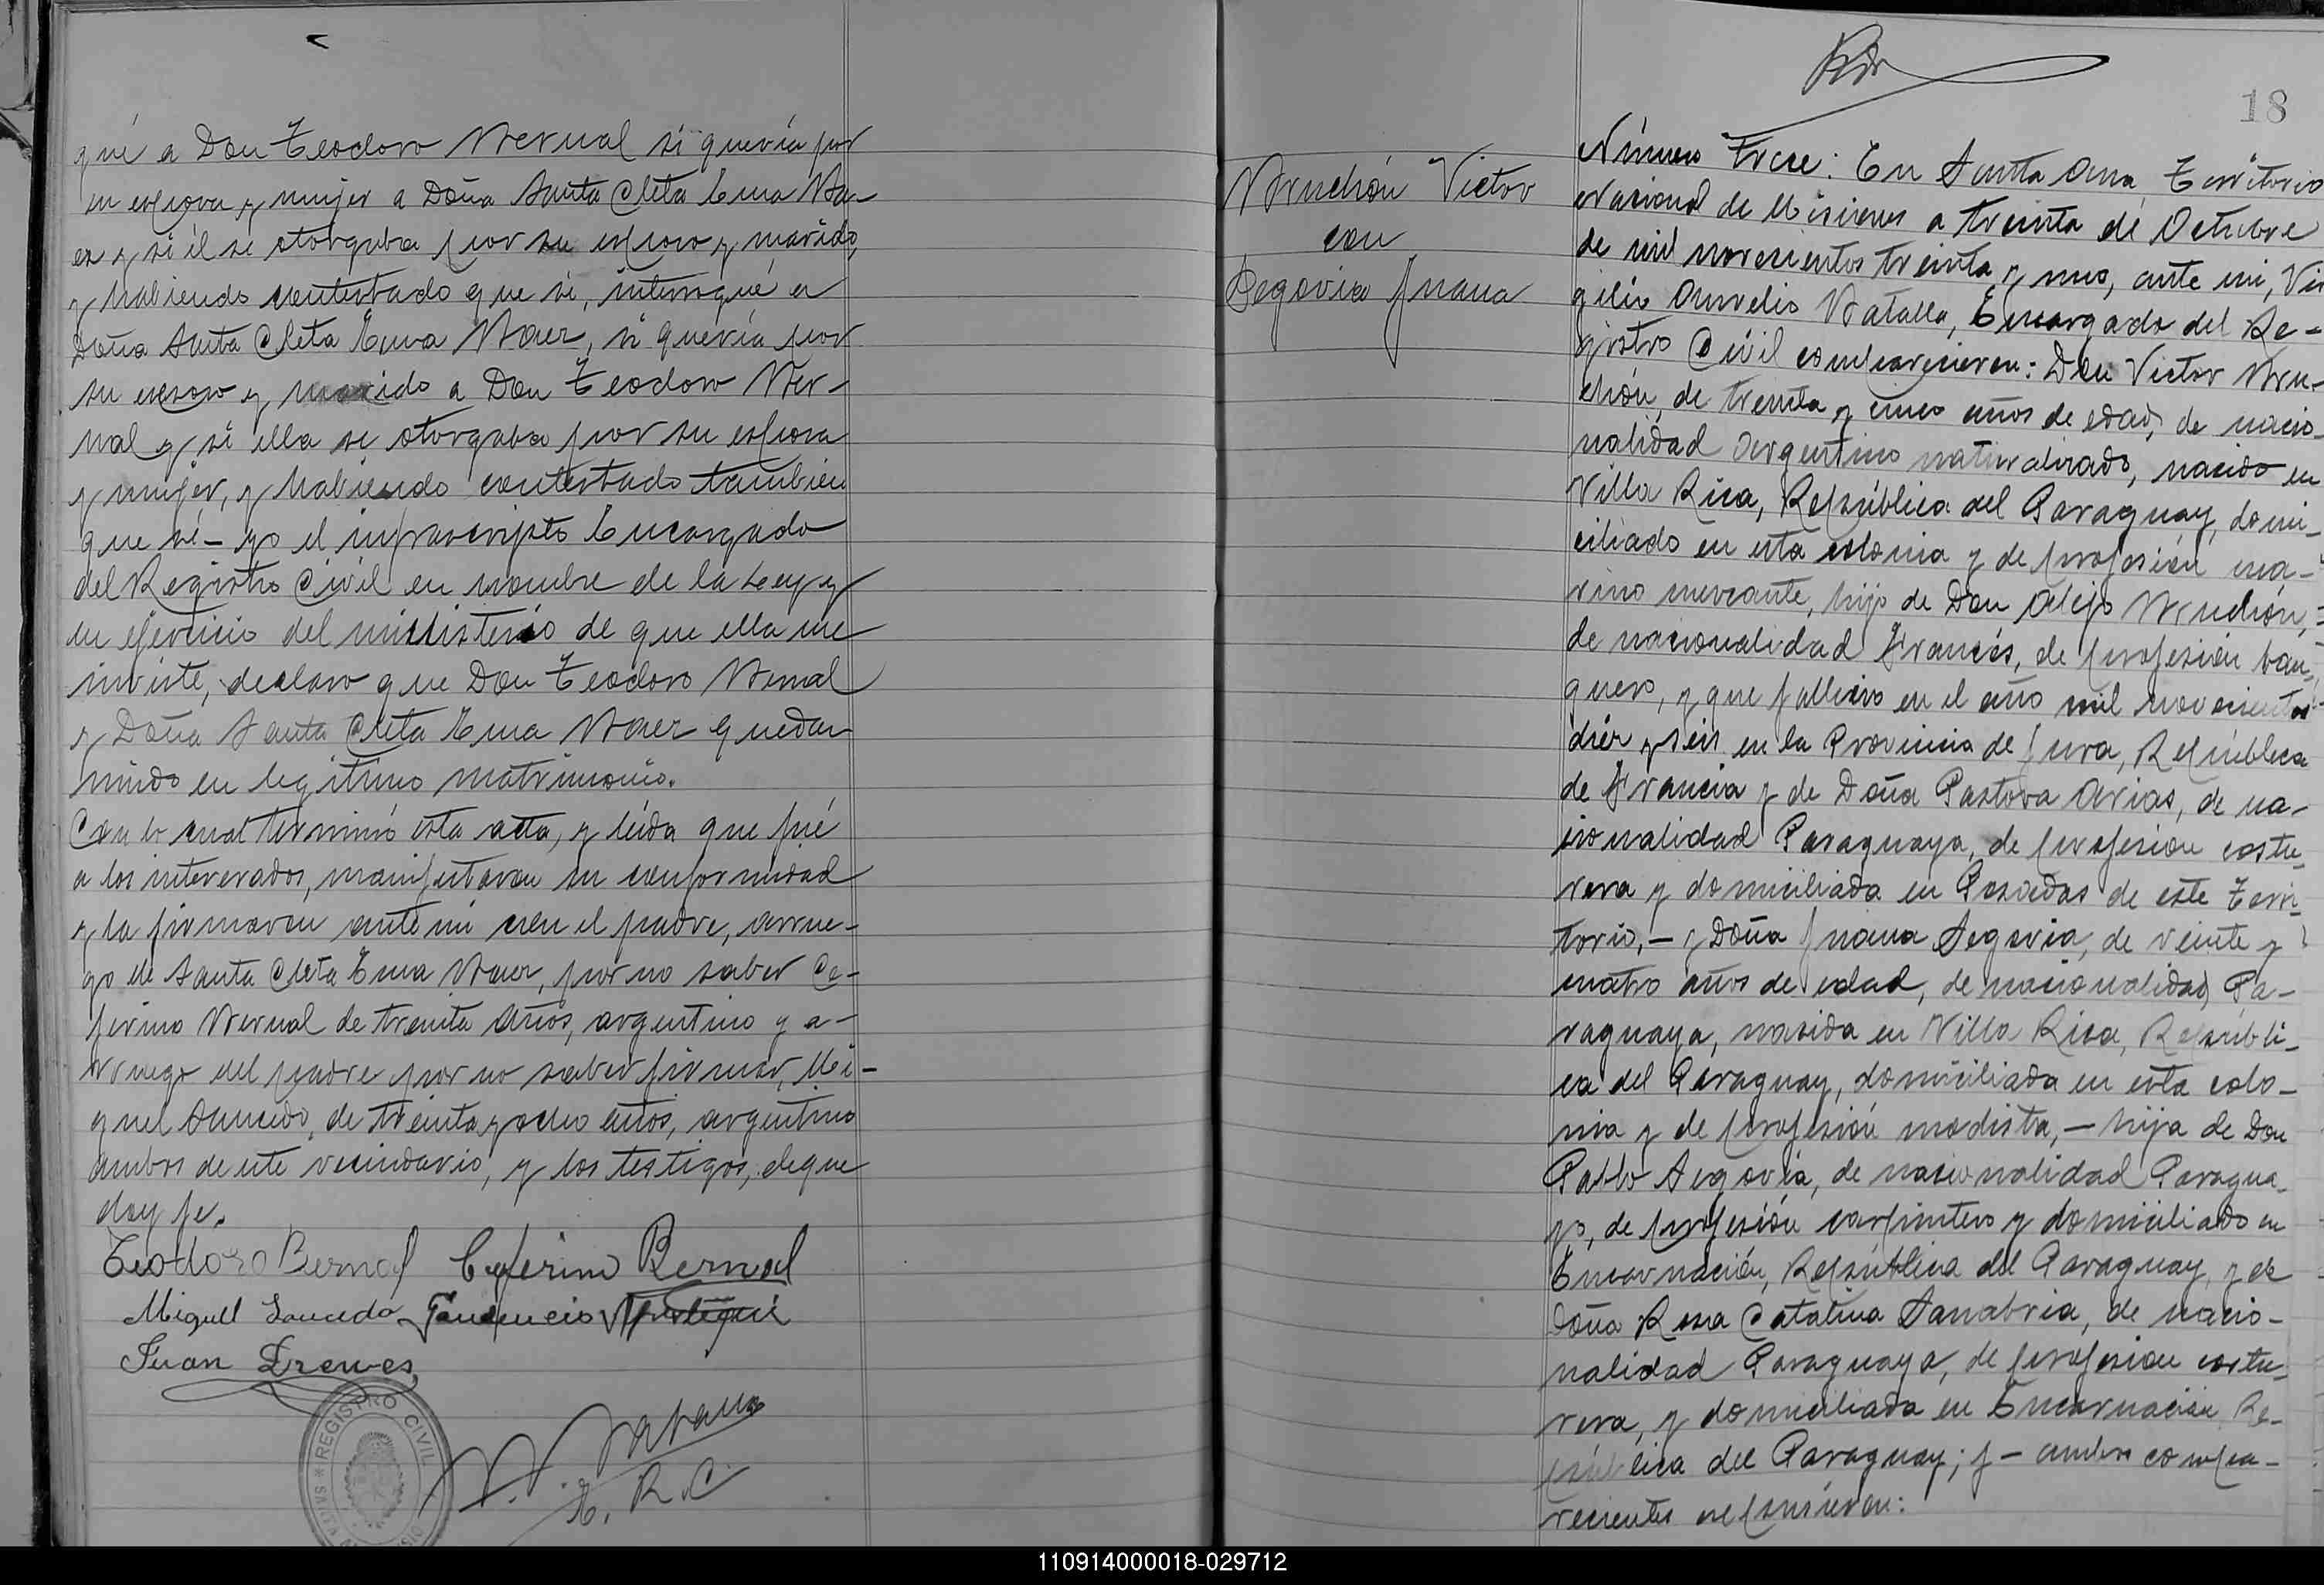 qué a Don Teodoro Bernal si quería por
su esposa y mujer a Doña Santa Cleta Ema Ba-
ez y si él se otorgaba por su esposo y marido,
y habiendo contestado que si, interrogué a
Doña Santa Cleta Ema Baez, si quería por
su esposo y marido a Don Teodoro Ber-
nal y si ella se otorgaba por su esposa
y mujer, y habiendo contestado tambien
que si - yo el infrascripto Encargado
del Registro Civil en nombre de la Ley y
en ejercicio del ministerio de que ella me
inviste, declaro que Don Teodoro Bernal
y Doña Santa Cleta Ema Baez quedan
unidos en legítimo matrimonio.
Con lo cual terminó esta acta, y leida que fué
a los interesados, manifestaron su conformidad
y la firmaron ante mi con el padre, arrue-
go de Santa Cleta Ema Baez, por no saber Ce-
ferino Bernal de treinta años, argentino y a-
rruego del padre por no saber firmar, Mi-
guel Saucedo, de treinta y ocho años, argentino
ambos de este vecindario, y los testigos, de que
doy fe.
Teodoro Bernal Ceferino Bernal
Miguel Saucedo
Juan Drewes
V. A. Batalla
E. R. C.
REGISTRO CIVIL
18
Bruchón Victor
con
Segovia Juana
Número Trece: En Santa Ana, Territorio
Nacional de Misiones a treinta de Octubre
de mil novecientos treinta y uno, ante mi, Vir
gilio Aurelio Batalla, Encargado del Re-
gistro Civil comparecieron: Don Victor Bru-
chón, de treinta y cinco años de edad, de nacio-
nalidad Argentino naturalizado, nacido en
Villa Rica, República del Paraguay, domi-
ciliado en esta colonia y de profesión ma-
rino mercante, hijo de Don Alejo Bruchón,
de nacionalidad Francés, de profesión ban-
quero, y que falleció en el año mil novecientos
diez y seis en la Provincia de Jura, República
de Francia y de Doña Pastora Arias, de na-
cionalidad Paraguaya, de profesion costu-
rera y domiciliada en Posadas de este Terri-
torio, - y Doña Juana Segovia, de veinte y
cuatro años de edad, de nacionalidad Pa-
raguaya, nacida en Villa Rica, Repúbli-
ca del Paraguay, domiciliada en esta colo-
nia y de profesión modista, - hija de Don
Pablo Segovia, de nacionalidad Paragua-
yo, de profesión carpintero y domiciliado en
Encarnación, República del Paraguay, y de
Doña Rosa Catalina Sanabria, de nacio-
nalidad Paraguaya, de profesion costu-
rera, y domiciliada en Encarnación Re-
pública del Paraguay; y - ambos compa-
recientes expusieron:
110914000018-029712